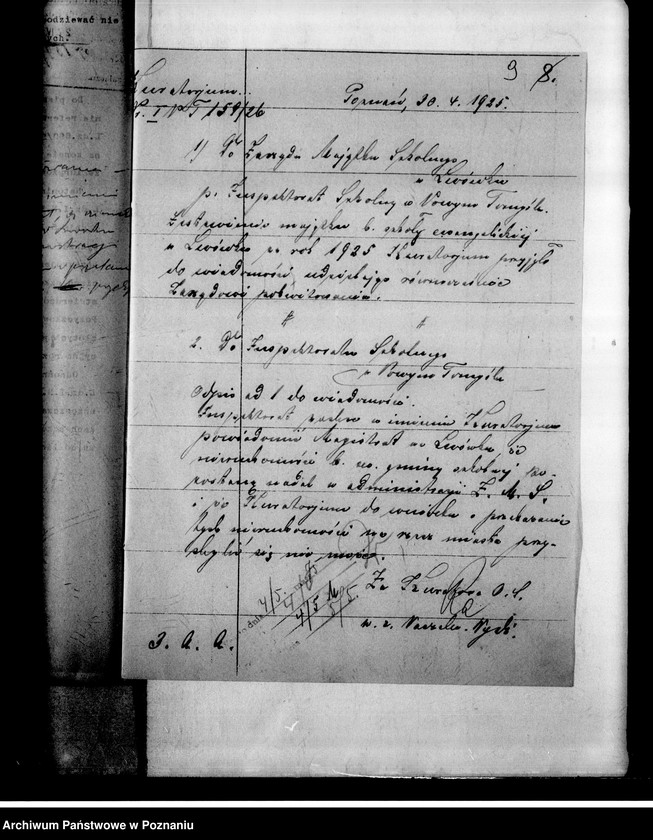 odziewać nie
ych.
9 8.
Kuratorjum
Nr. I NT 159/26
Poznań, 30. 4. 1925.
1) Do Zarządu Majątku Szkolnego
w Lwówku
p. Inspektorat Szkolny w Nowym Tomyślu.
Zestawienie majątku b. szkoły ewangelickiej
w Lwówku za rok 1925 Kuratorjum przyjęło
do wiadomości, udzielając równocześnie
Zarządowi pokwitowania.
2. Do Inspektoratu Szkolnego
w Nowym Tomyślu
Odpis ad 1 do wiadomości.
Inspektorat zechce w imieniu Kuratorjum
powiadomić Magistrat w Lwówku, że
nieruchomości b. gminy szkolnej po-
zostaną nadal w administracji Z. M. S.
i że Kuratorjum do wniosku o przekazanie
tych nieruchomości na rzecz miasta przy-
chylić się nie może.
4/5.
4/5
5/5.
Za Kuratora O. S.
w. z. Naczeln. Wydz.
3. A. A.
Archiwum Państwowe w Poznaniu